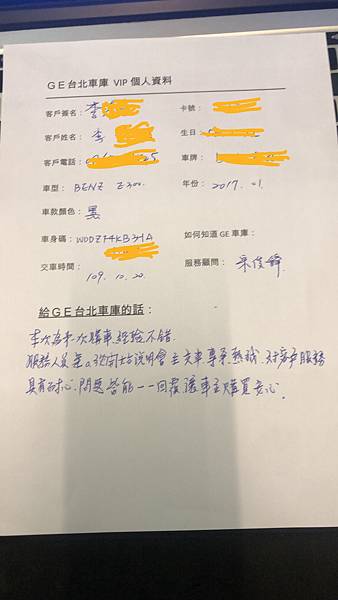 GE台北車庫 VIP 個人資料
客戶簽名： 李
卡號：
客戶姓名： 李
生日：
客戶電話：
車牌：
車型： BENZ E300
年份： 2017.01
車款顏色： 黑
車身碼： WDDZF4KB3HA
如何知道 GE 車庫：
交車時間： 109.10.20
服務顧問：
給GE台北車庫的話：
本次為第一次購車,經驗不錯.
服務人員 說明會至交車專業熱誠.對客戶服務
具有耐心.問題皆能一一回覆讓車主購買安心。